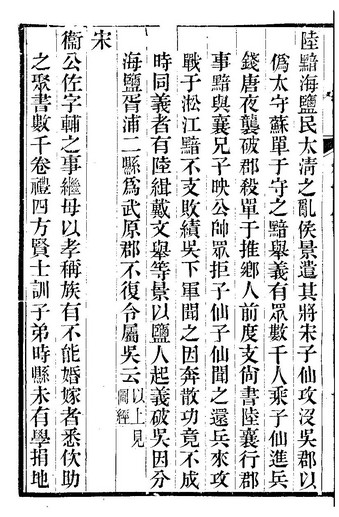 陸黯海鹽民太清之亂侯景遣其將宋子仙攻沒吳郡以
僞太守蘇單于守之黯舉義有眾數千人乘子仙進兵
錢唐夜襲破郡殺單于推鄉人前度支尙書陸襄行郡
事黯與襄兄子映公帥眾拒子仙子仙聞之還兵來攻
戰于淞江黯不支敗績吳下軍聞之因奔散功竟不成
時同義者有陸緝戴文舉等景以鹽人起義破吳因分
海鹽胥浦二縣爲武原郡不復令屬吳云以上見圖經
宋
衞公佐字輔之事繼母以孝稱族有不能婚嫁者悉佽助
之聚書數千卷禮四方賢士訓子弟時縣未有學捐地